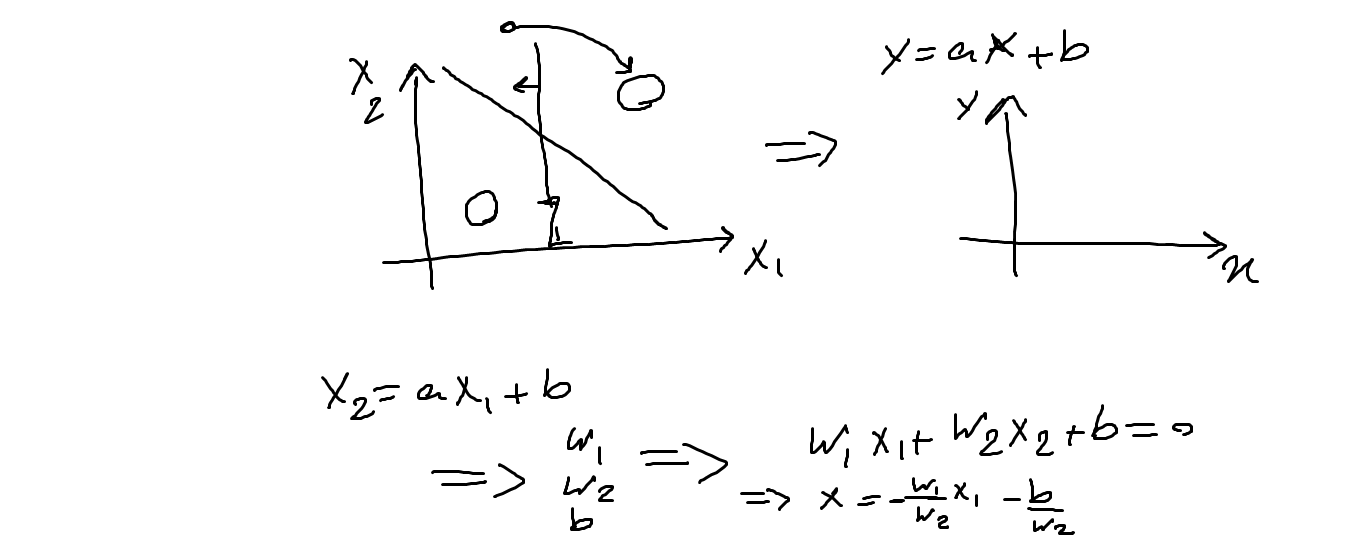 y = ax + b
x
2
y
x₁
x
x₂ = ax₁ + b
w₁
w₂
b
=> => w₁ x₁ + w₂ x₂ + b = 0
=> x = -w₁/w₂ x₁ - b/w₂